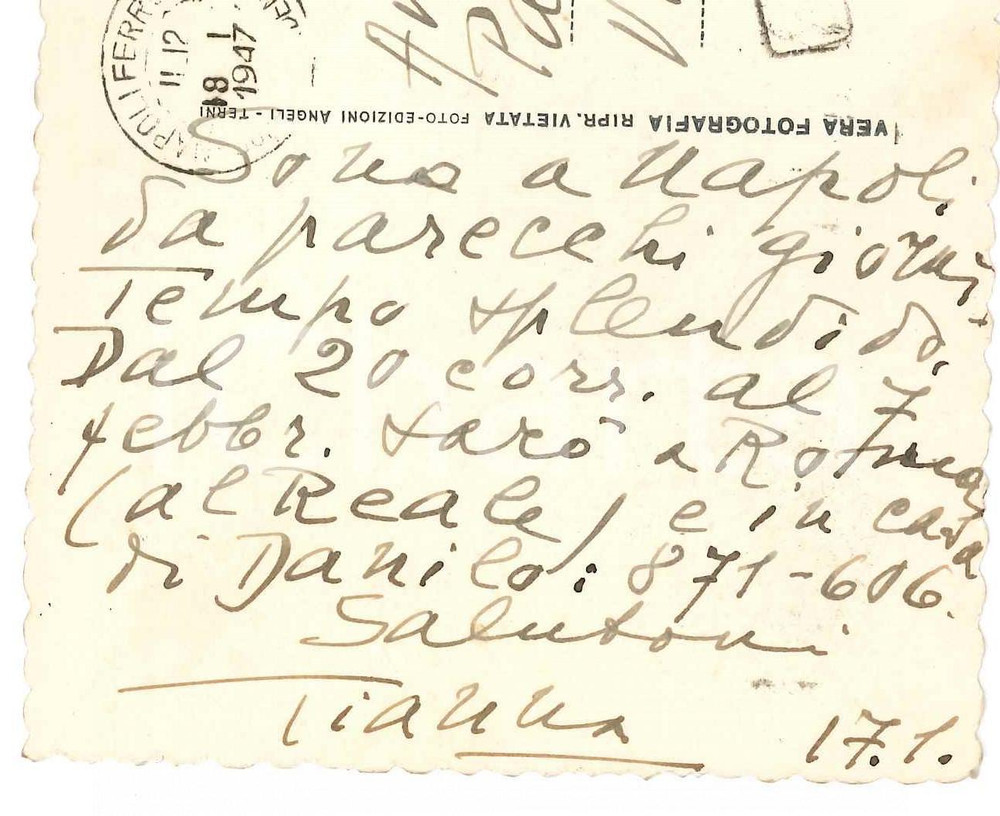 NAPOLI FERR
11-12
18 1
1947
VERA FOTOGRAFIA RIPR. VIETATA FOTO-EDIZIONI ANGELI - TERNI
Sono a Napoli
da parecchi giorni.
Tempo splendido.
Dal 20 corr. al 7
febbr. sarò a Roma
(al Reale) e in casa
di Danilo: 871-606.
Salutoni
Tianna
17.1.